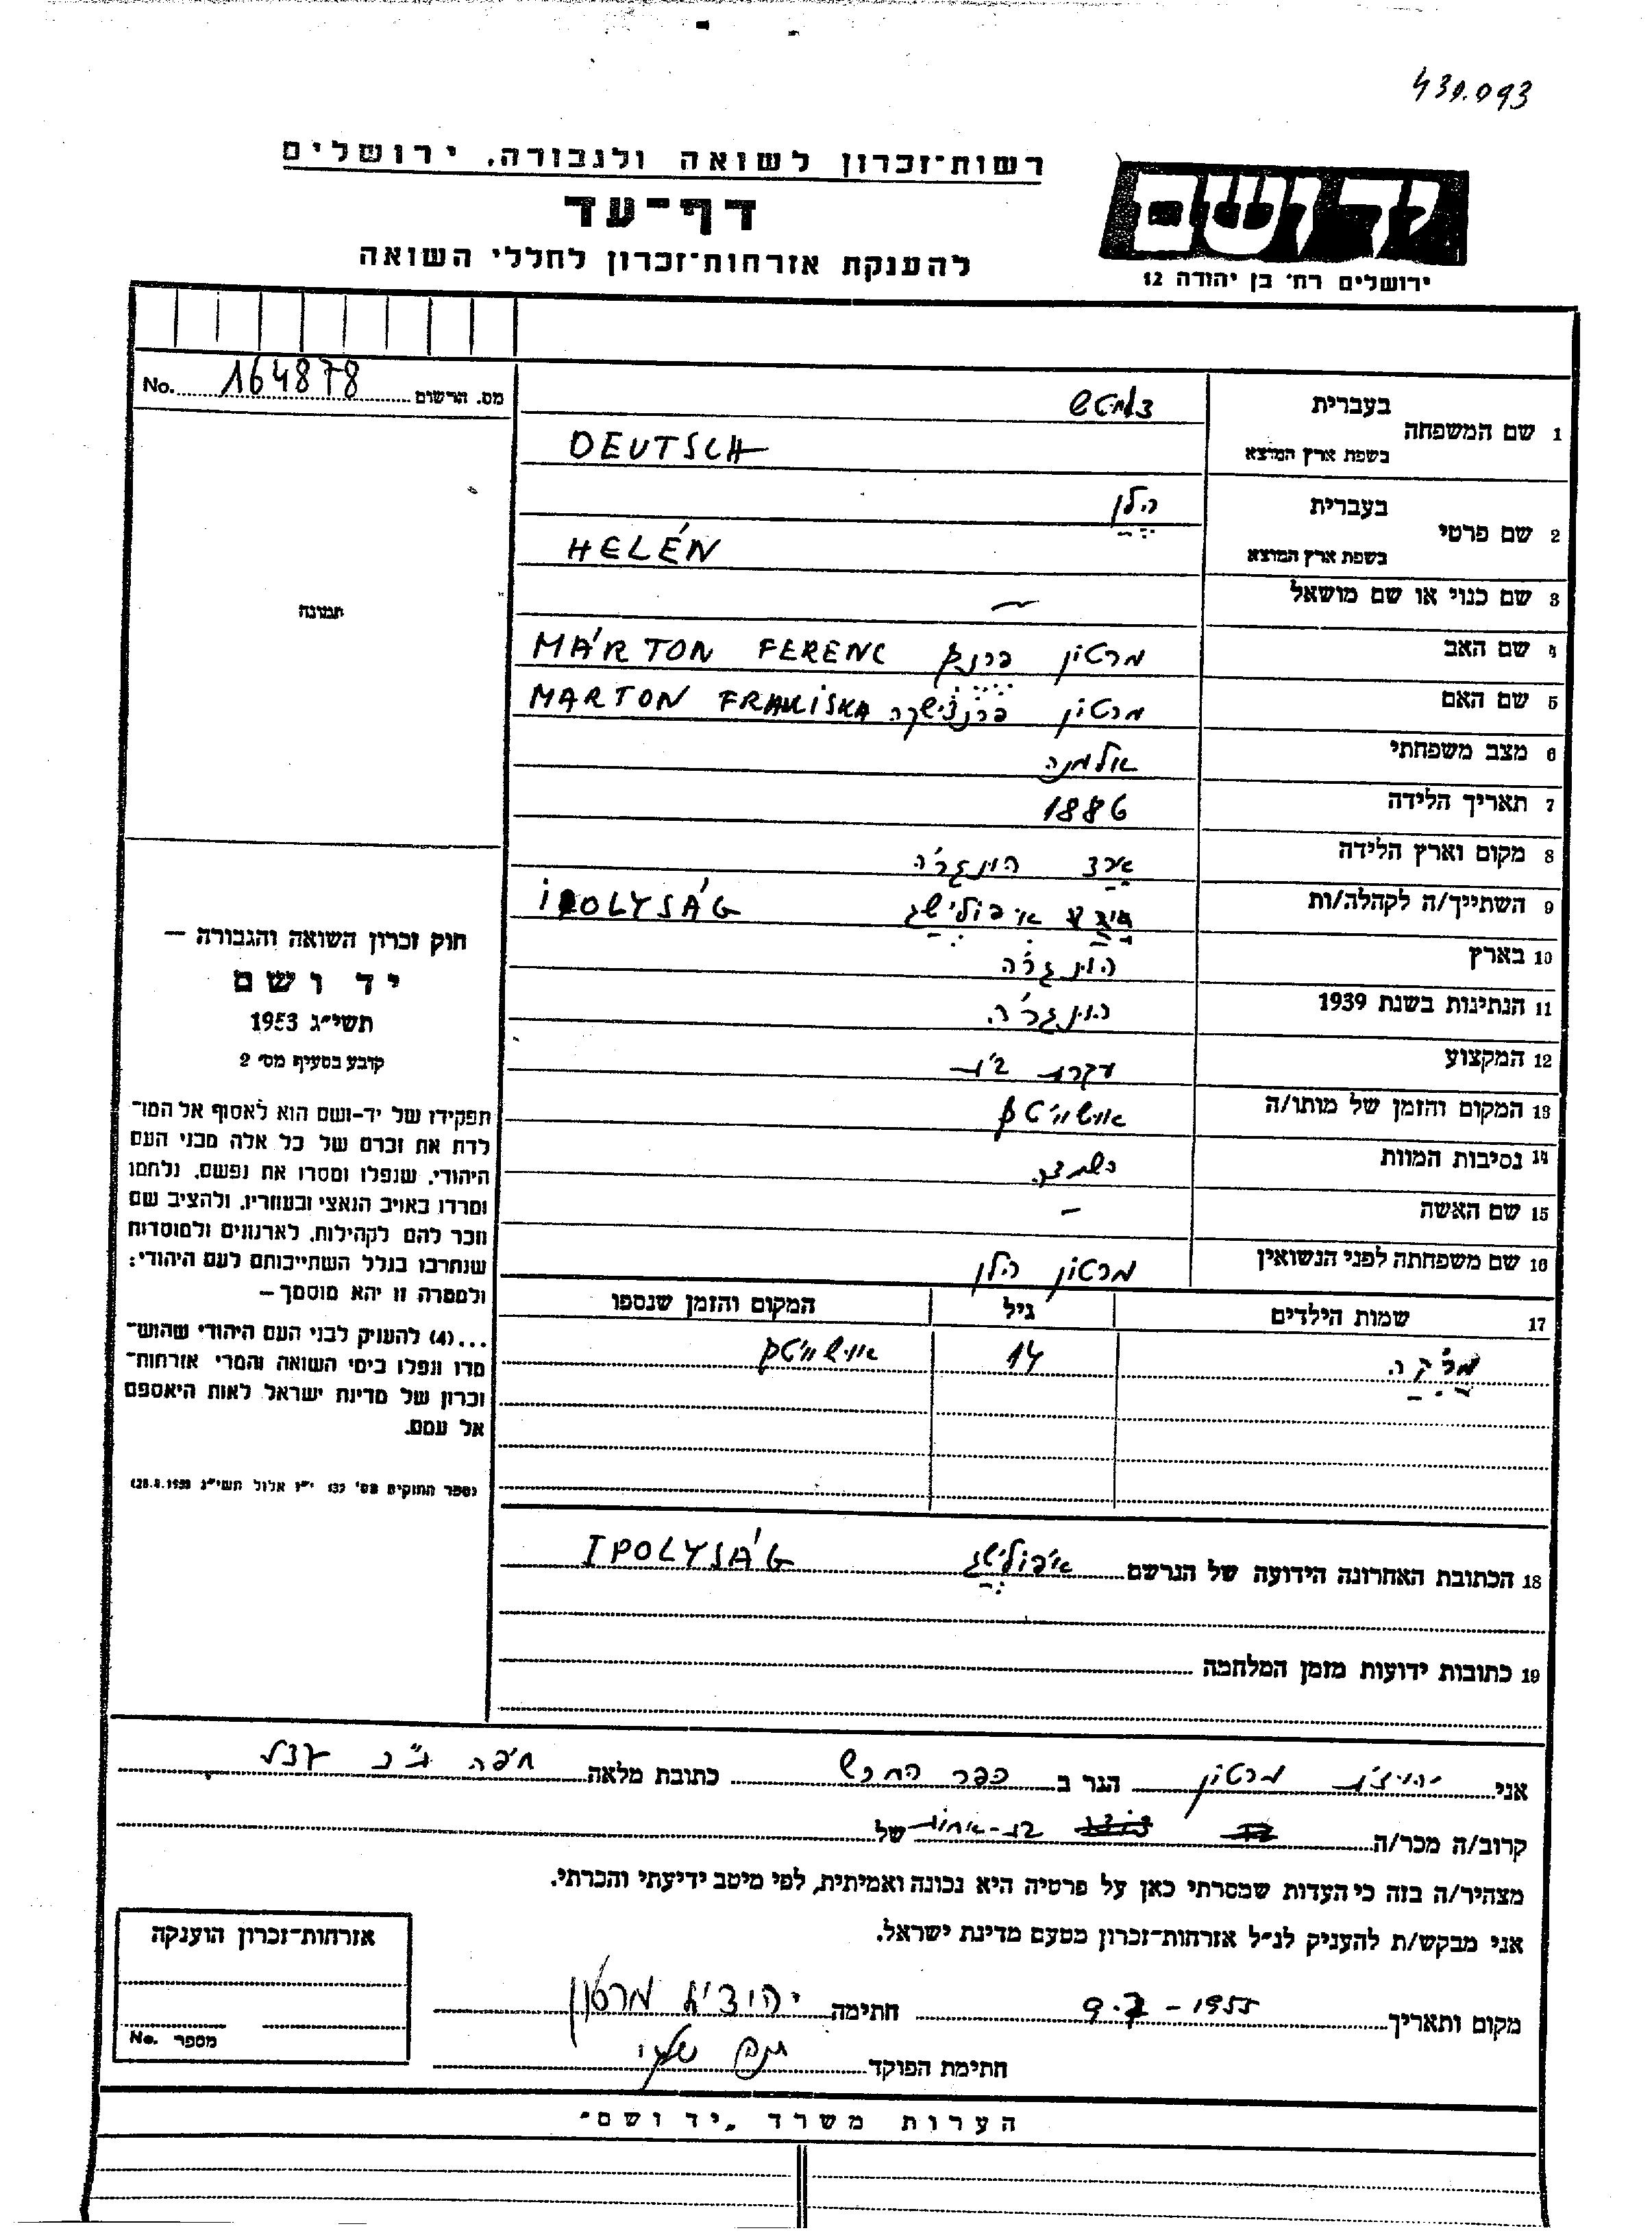 430.093
רשות־זכרון לשואה ולגבורה, ירושלים
דף־עד
להענקת אזרחות־זכרון לחללי השואה
ידושם
ירושלים רח׳ בן יהודה 12
מס. הרשום 164878 No.
תמונה
1 שם המשפחה
בעברית
בשפת ארץ המוצא
DEUTSCH
2 שם פרטי
בעברית הלן
בשפת ארץ המוצא HELÉN
3 שם כנוי או שם מושאל —
4 שם האב מרטון פרנץ MÁRTON FERENC
5 שם האם מרטון פרנצישקה MARTON FRANCISKA
6 מצב משפחתי אלמנה
7 תאריך הלידה 1886
8 מקום וארץ הלידה הונגריה
9 השתייך/ה לקהלה/ות איפולישג IPOLYSÁG
10 בארץ הונגריה
11 הנתינות בשנת 1939 הונגריה
12 המקצוע עקרת בית
13 המקום והזמן של מותו/ה אושוויטץ
14 נסיבות המוות השמדה
15 שם האשה —
16 שם משפחתה לפני הנשואין מרטון הלן
17 שמות הילדים גיל המקום והזמן שנספו
14 אושוויטץ
18 הכתובת האחרונה הידועה של הנרשם איפולישג IPOLYSÁG
19 כתובות ידועות מזמן המלחמה
חוק זכרון השואה והגבורה —
יד ושם
תשי״ג 1953
קובע בסעיף מס׳ 2
תפקידו של יד-ושם הוא לאסוף אל המו־
לדת את זכרם של כל אלה מבני העם
היהודי, שנפלו ומסרו את נפשם, נלחמו
ומרדו באויב הנאצי ובעוזריו, ולהציב שם
וזכר להם לקהילות, לארגונים ולמוסדות
שנחרבו בגלל השתייכותם לעם היהודי;
ולמטרה זו יהא מוסמך —
...(4) להעניק לבני העם היהודי שהוש־
מדו ונפלו בימי השואה והמרי אזרחות־
זכרון של מדינת ישראל לאות היאספם
אל עמם.
(ספר החוקים מס׳ 132 י״ז אלול תשי״ג 28.8.1953)
אני יהודית מרטון הגר ב כפר החרש כתובת מלאה חיפה
קרוב/ה מכר/ה בת-אחות של
מצהיר/ה בזה כי העדות שמסרתי כאן על פרטיה היא נכונה ואמיתית, לפי מיטב ידיעתי והכרתי.
אני מבקש/ת להעניק לנ״ל אזרחות־זכרון מטעם מדינת ישראל.
מקום ותאריך 9.7-1955 חתימה יהודית מרטון
חתימת הפוקד
אזרחות־זכרון הוענקה
מספר No.
הערות משרד „יד ושם״